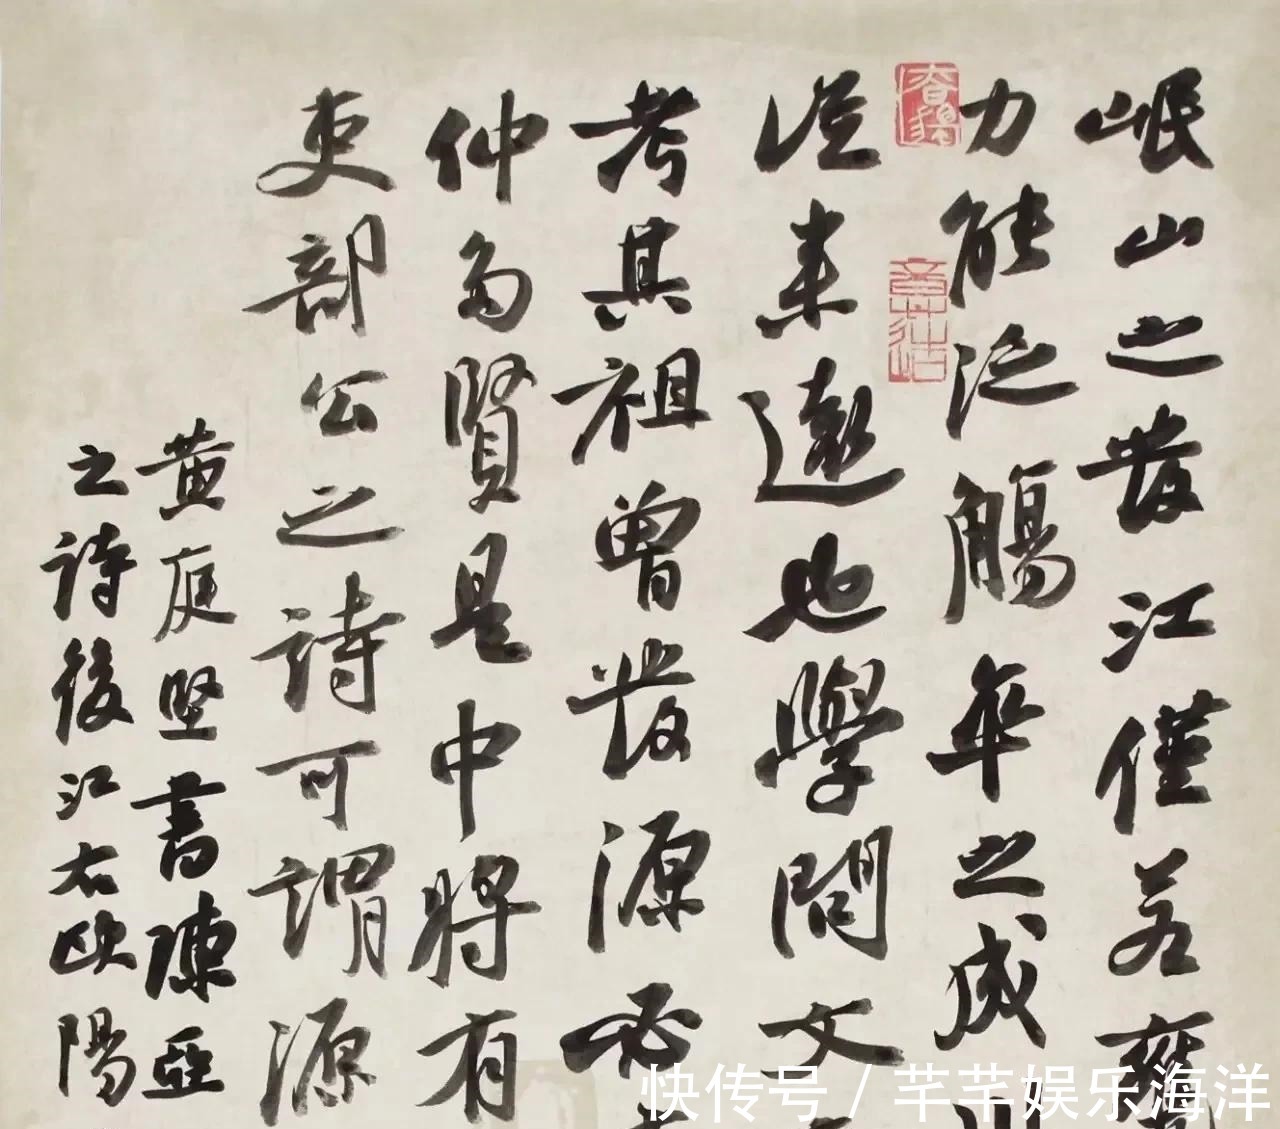 岷山之發江僅若甕
力能泛觴卒之成
從來遠也學問文
考其祖曾發源必
仲多賢是中將有
吏部公之詩可謂源
黄庭堅書陳亞
之詩後江右歐陽
快传号 / 芊芊娱乐海洋